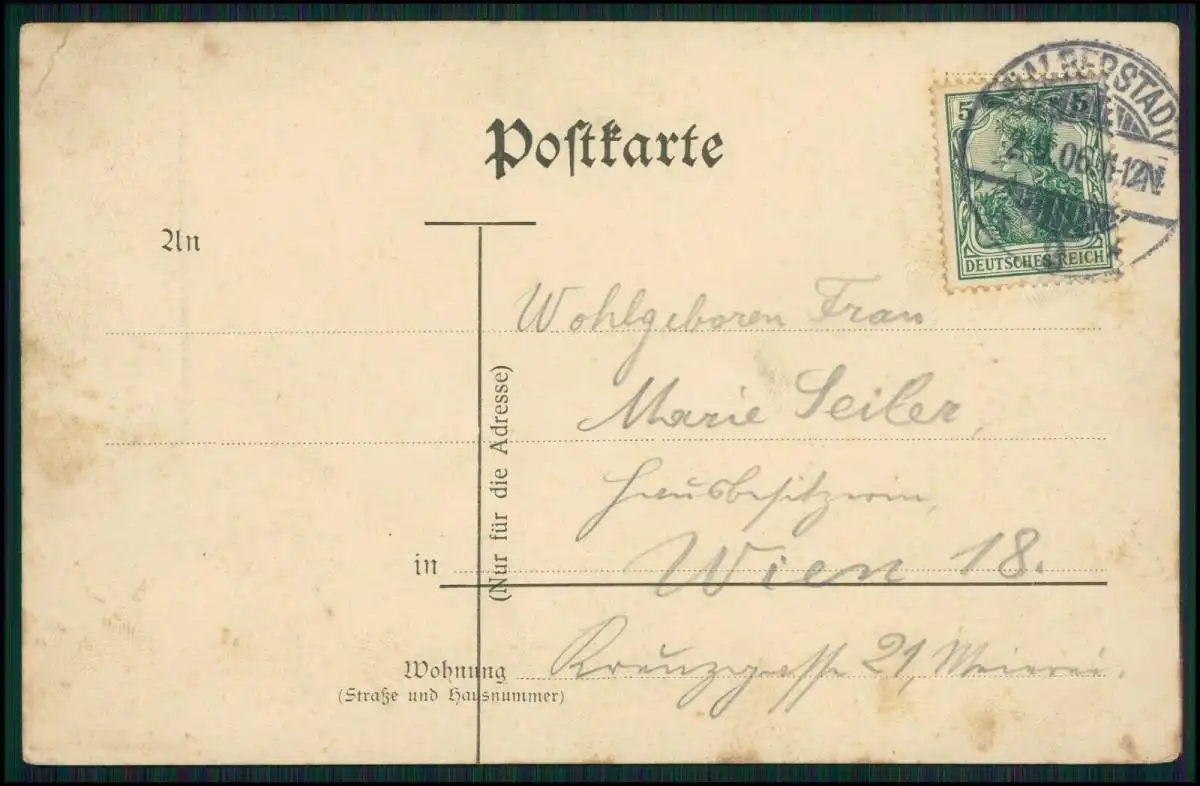 Postkarte
HALBERSTADT
5 5
06.11-12N.
DEUTSCHES REICH
An
Wohlgeboren Frau
Marie Seiler,
(Nur für die Adresse)
Hausbesitzerin,
in Wien 18.
Wohnung Kreuzgasse 21, Meierei.
(Straße und Hausnummer)